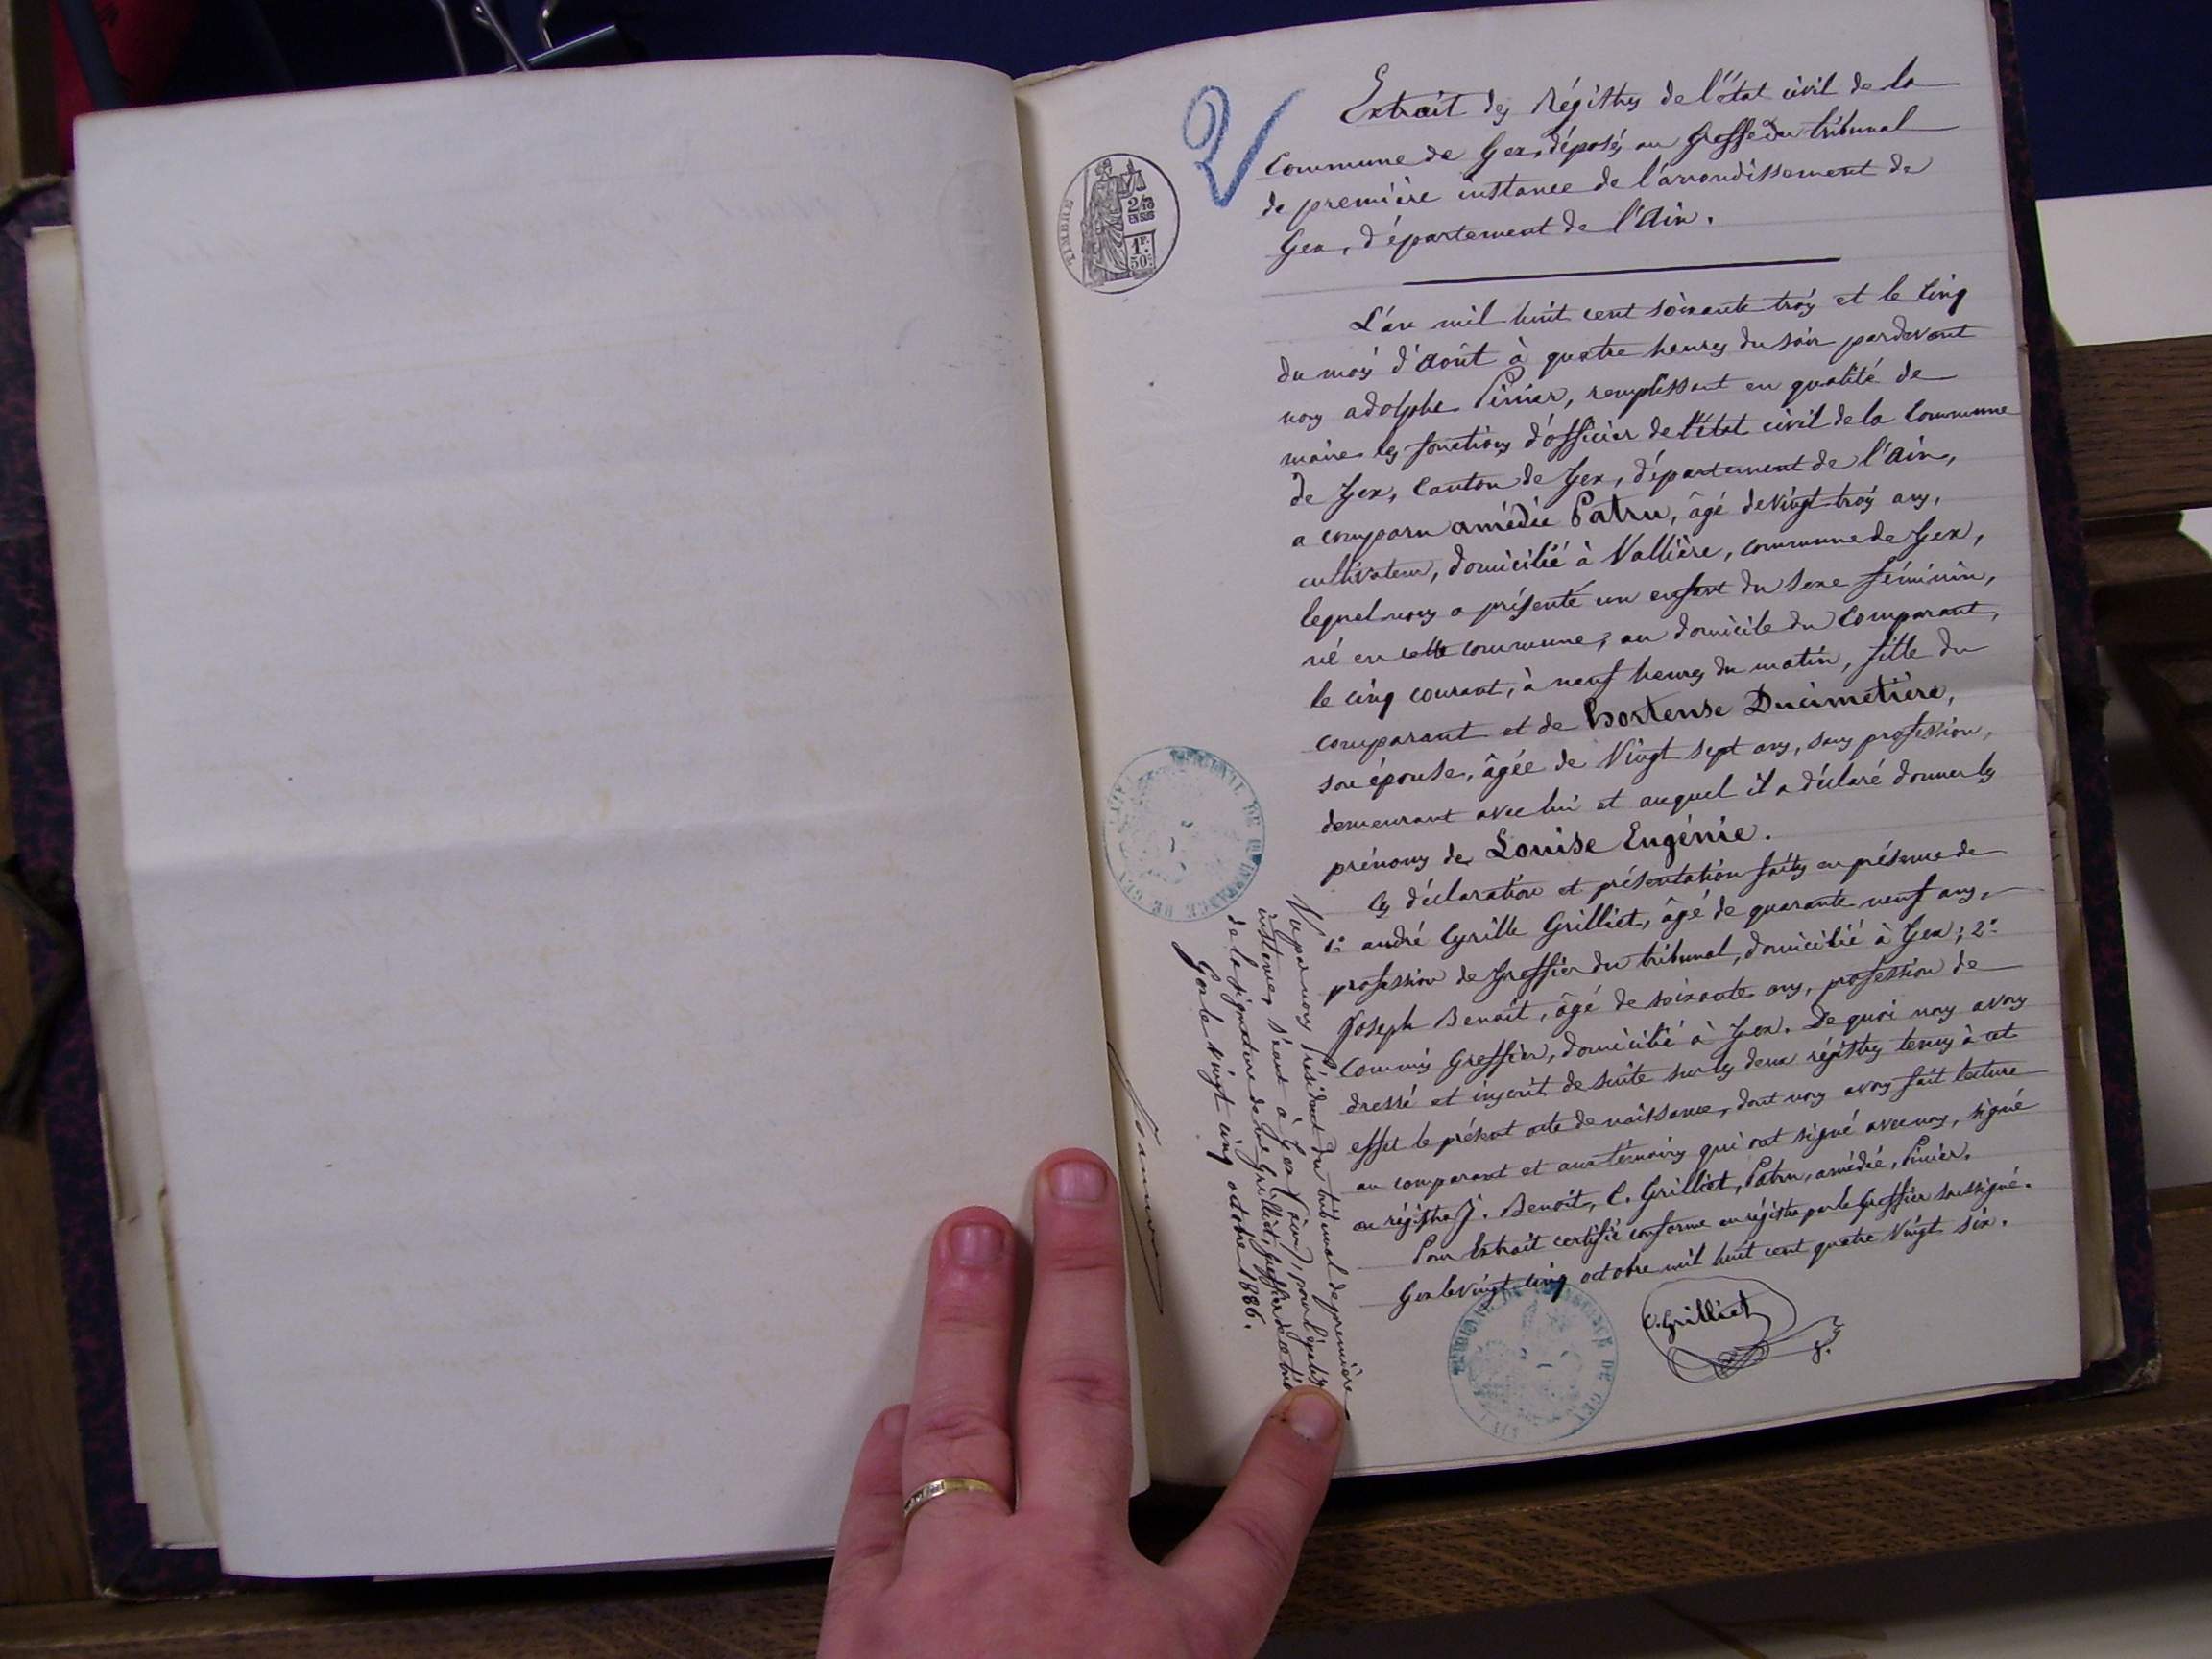 2
TIMBRE
2/10
EN SUS
1F.
50c.
Extrait des Régistres de l'état civil de la
Commune de Gex, déposés au Greffe du tribunal
de première instance de l'arrondissement de
Gex, département de l'Ain.
L'an mil huit cent soixante trois et le cinq
du mois d'Août à quatre heures du soir pardevant
nous adolphe Pinier, remplissant en qualité de
maire les fonctions d'officier de l'état civil de la Commune
de Gex, Canton de Gex, département de l'Ain,
a comparu amédée Patru, âgé de vingt trois ans,
cultivateur, domicilié à Vallière, commune de Gex,
lequel nous a présenté un enfant du sexe féminin,
né en cette commune, au domicile du Comparant,
le cinq courant, à neuf heures du matin, fille du
comparant et de hortense Ducimetière,
son épouse, âgée de Vingt sept ans, sans profession,
demeurant avec lui et auquel il a déclaré donner les
prénoms de Louise Eugénie.
Ces déclaration et présentation faites en présence de
1° andré Cyrille Grilliet, âgé de quarante neuf ans,
profession de Greffier du tribunal, domicilié à Gex; 2°
Joseph Benoit, âgé de soixante ans, profession de
Commis Greffier, domicilié à Gex. De quoi nous avons
dressé et inscrit de suite sur les deux régistres tenus à cet
effet le présent acte de naissance, dont nous avons fait lecture
au comparant et aux témoins qui ont signé avec nous, signé
au régistre J. Benoit, C. Grilliet, Patru, amédée, Pinier.
Pour Extrait certifié conforme au régistre par le Greffier soussigné.
Gex le Vingt cinq octobre mil huit cent quatre Vingt six.
C. Grilliet
Vu par nous Président du tribunal de première
instance, séant à Gex (Ain), pour légalis
de la signature de Me Grilliet, greffier de ce trib
Gex le vingt cinq octobre 1886.
TRIBUNAL DE 1RE INSTANCE DE GEX
TRIBUNAL DE 1RE INSTANCE DE GEX